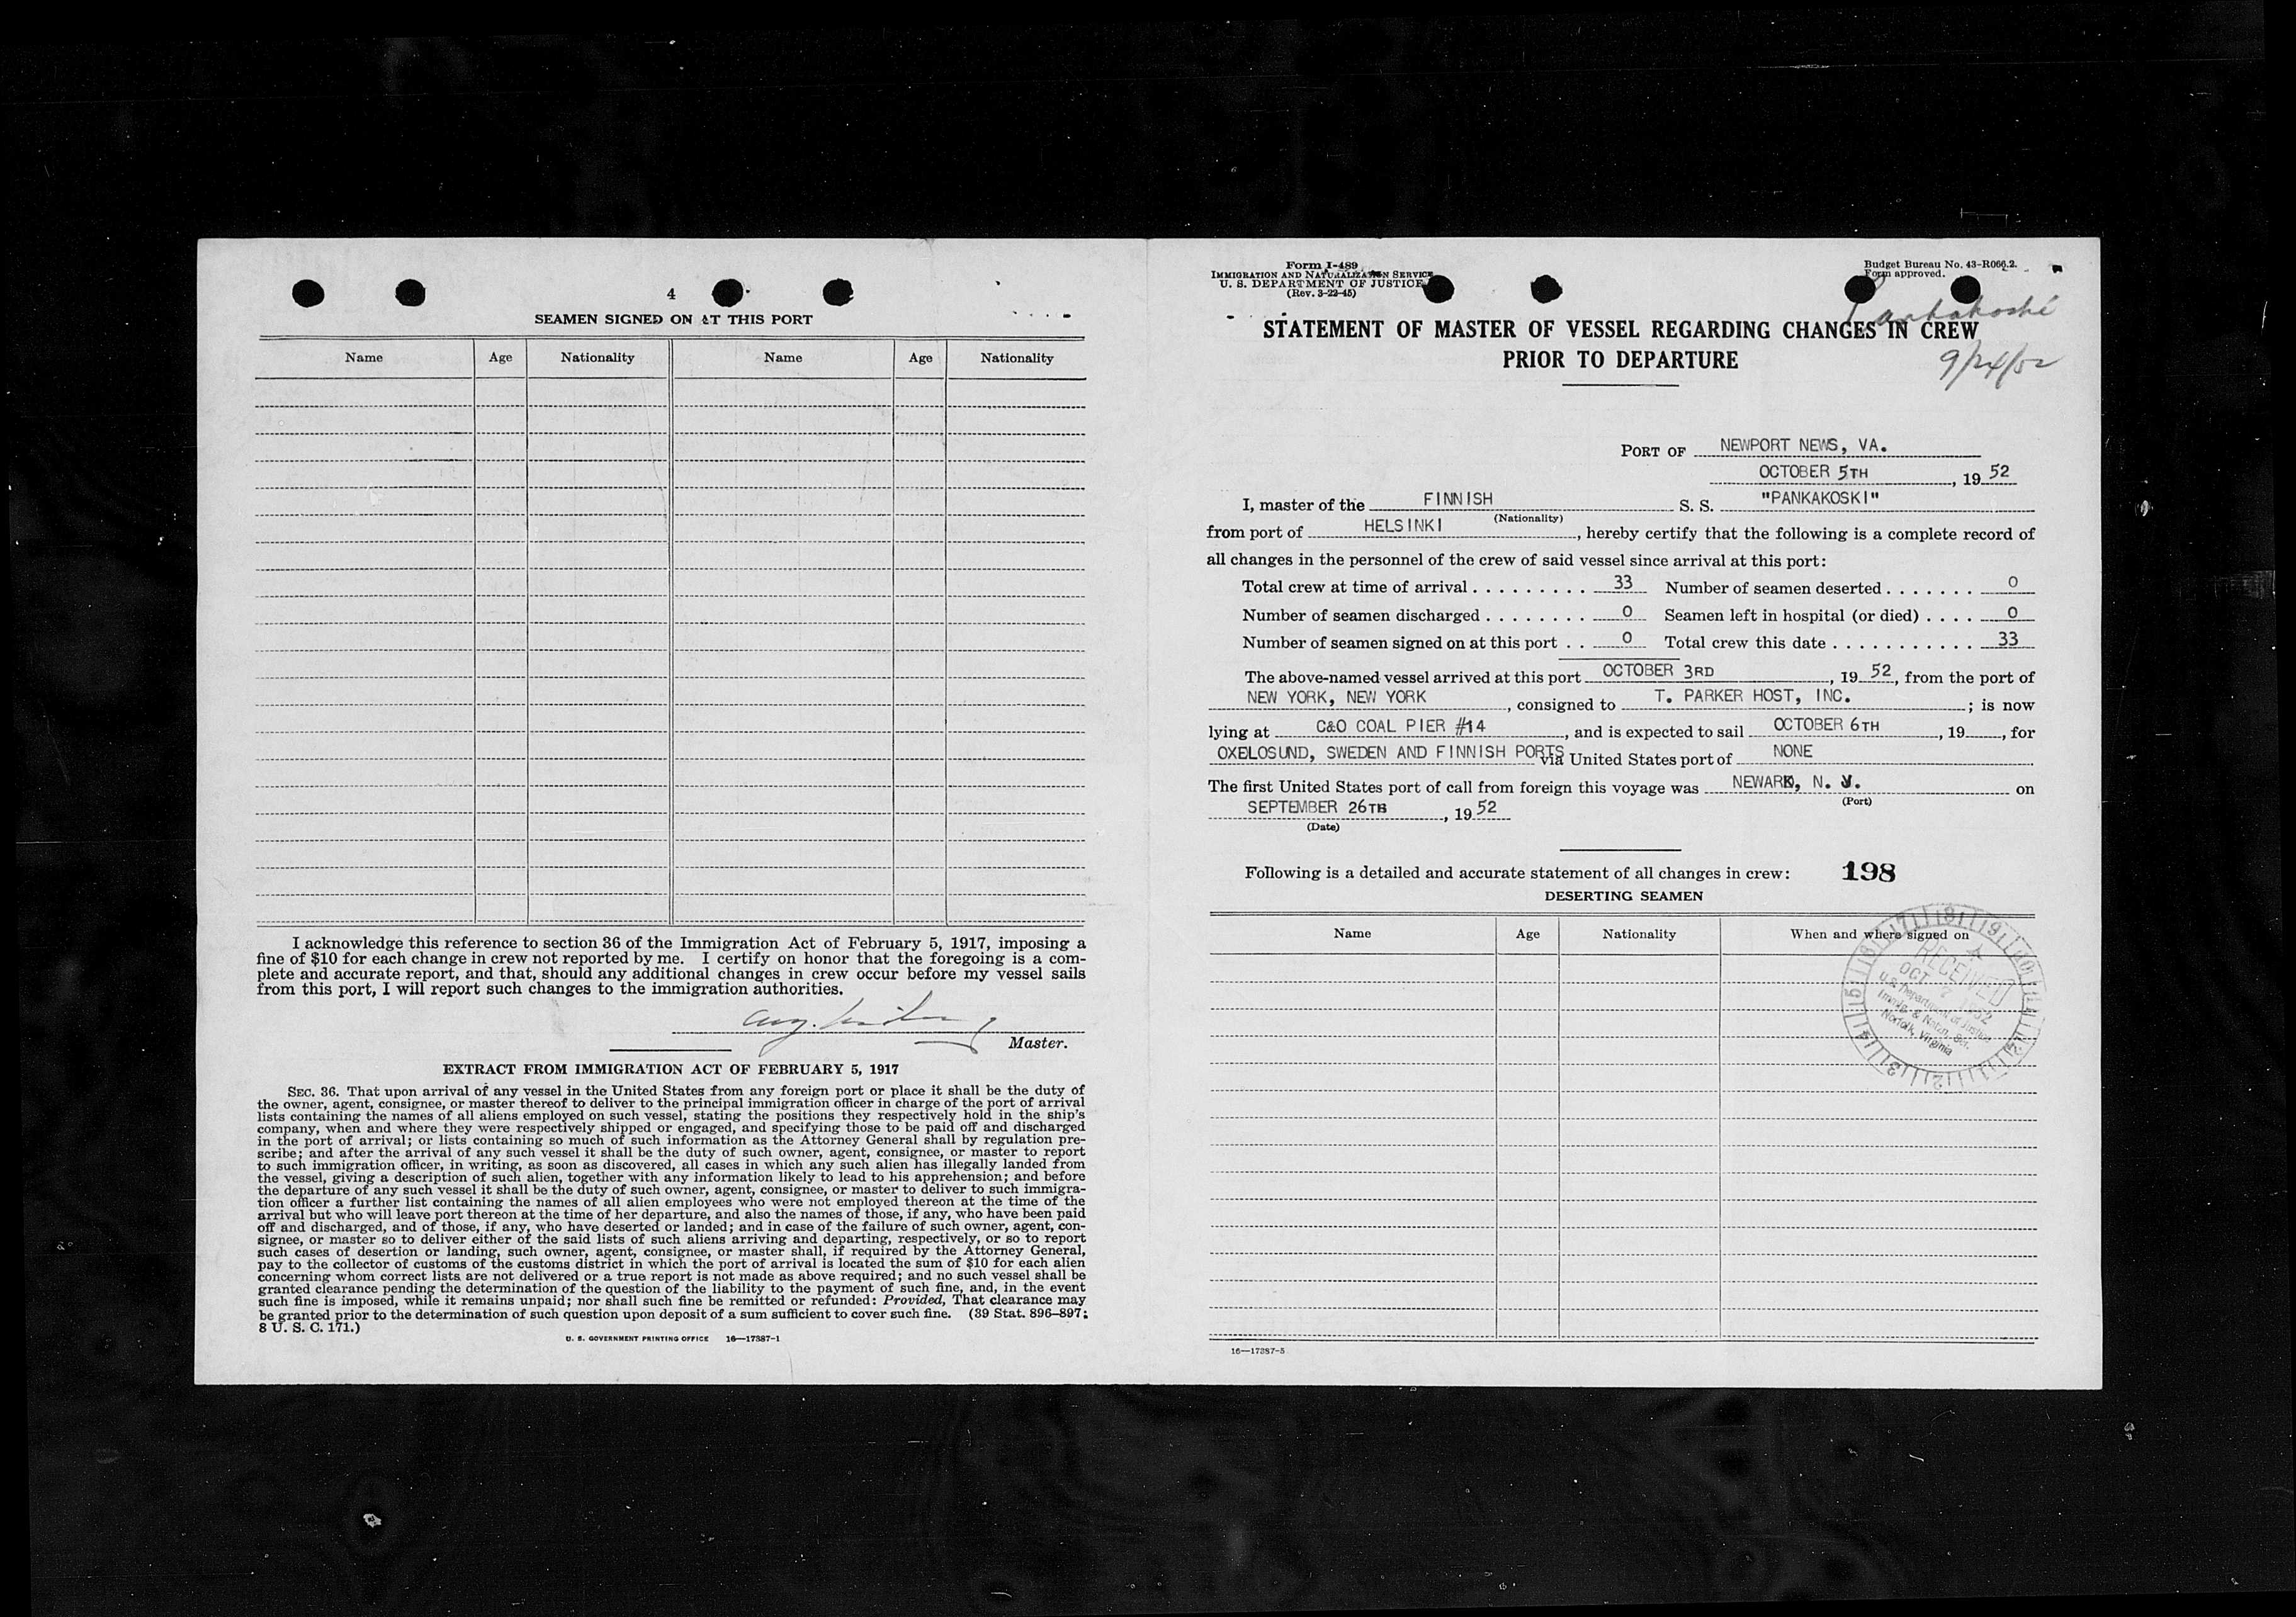 4
SEAMEN SIGNED ON AT THIS PORT
Name Age Nationality Name Age Nationality
I acknowledge this reference to section 36 of the Immigration Act of February 5, 1917, imposing a
fine of $10 for each change in crew not reported by me. I certify on honor that the foregoing is a com-
plete and accurate report, and that, should any additional changes in crew occur before my vessel sails
from this port, I will report such changes to the immigration authorities.
Master.
EXTRACT FROM IMMIGRATION ACT OF FEBRUARY 5, 1917
SEC. 36. That upon arrival of any vessel in the United States from any foreign port or place it shall be the duty of
the owner, agent, consignee, or master thereof to deliver to the principal immigration officer in charge of the port of arrival
lists containing the names of all aliens employed on such vessel, stating the positions they respectively hold in the ship's
company, when and where they were respectively shipped or engaged, and specifying those to be paid off and discharged
in the port of arrival; or lists containing so much of such information as the Attorney General shall by regulation pre-
scribe; and after the arrival of any such vessel it shall be the duty of such owner, agent, consignee, or master to report
to such immigration officer, in writing, as soon as discovered, all cases in which any such alien has illegally landed from
the vessel, giving a description of such alien, together with any information likely to lead to his apprehension; and before
the departure of any such vessel it shall be the duty of such owner, agent, consignee, or master to deliver to such immigra-
tion officer a further list containing the names of all alien employees who were not employed thereon at the time of the
arrival but who will leave port thereon at the time of her departure, and also the names of those, if any, who have been paid
off and discharged, and of those, if any, who have deserted or landed; and in case of the failure of such owner, agent, con-
signee, or master so to deliver either of the said lists of such aliens arriving and departing, respectively, or so to report
such cases of desertion or landing, such owner, agent, consignee, or master shall, if required by the Attorney General,
pay to the collector of customs of the customs district in which the port of arrival is located the sum of $10 for each alien
concerning whom correct lists are not delivered or a true report is not made as above required; and no such vessel shall be
granted clearance pending the determination of the question of the liability to the payment of such fine, and, in the event
such fine is imposed, while it remains unpaid; nor shall such fine be remitted or refunded: Provided, That clearance may
be granted prior to the determination of such question upon deposit of a sum sufficient to cover such fine. (39 Stat. 896–897;
8 U. S. C. 171.)
U. S. GOVERNMENT PRINTING OFFICE 16—17387-1
Form I-489
IMMIGRATION AND NATURALIZATION SERVICE
U. S. DEPARTMENT OF JUSTICE
(Rev. 3-22-45)
Budget Bureau No. 43-R066.2.
Form approved.
Pankakoski
STATEMENT OF MASTER OF VESSEL REGARDING CHANGES IN CREW
PRIOR TO DEPARTURE
9/24/52
PORT OF NEWPORT NEWS, VA.
OCTOBER 5TH, 19 52
I, master of the FINNISH S. S. "PANKAKOSKI"
(Nationality)
from port of HELSINKI, hereby certify that the following is a complete record of
all changes in the personnel of the crew of said vessel since arrival at this port:
Total crew at time of arrival . . . . . . . . . 33 Number of seamen deserted . . . . . . . 0
Number of seamen discharged . . . . . . . . 0 Seamen left in hospital (or died) . . . . 0
Number of seamen signed on at this port . . 0 Total crew this date . . . . . . . . . . . 33
The above-named vessel arrived at this port OCTOBER 3RD, 19 52, from the port of
NEW YORK, NEW YORK, consigned to T. PARKER HOST, INC.; is now
lying at C&O COAL PIER #14, and is expected to sail OCTOBER 6TH, 19, for
OXELOSUND, SWEDEN AND FINNISH PORTS via United States port of NONE
The first United States port of call from foreign this voyage was NEWARK, N. J. on
(Port)
SEPTEMBER 26TH, 19 52
(Date)
Following is a detailed and accurate statement of all changes in crew: 198
DESERTING SEAMEN
Name Age Nationality When and where signed on
RECEIVED
OCT 7 1952
U.S. Department of Justice
Immig. & Natzn. Ser.
Norfolk, Virginia
16—17387-5